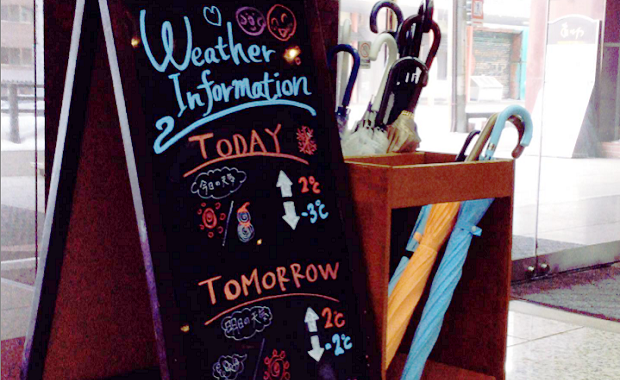 Weather
Information
TODAY
今日の天気
2℃
-3℃
TOMORROW
明日の天気
2℃
-2℃